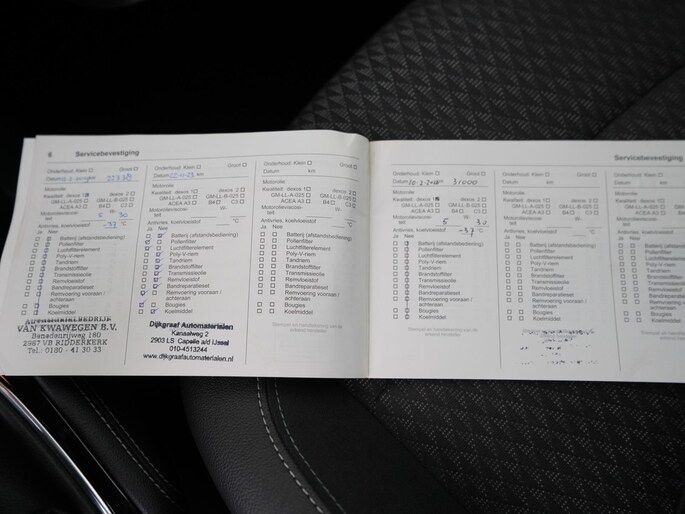 6 Servicebevestiging
Onderhoud: Klein Groot
Datum km
Motorolie
Kwaliteit: dexos 1 dexos 2
GM-LL-A-025 GM-LL-B-025
ACEA A3 B4 C3
Motorolieviscosi- W-
teit 5 30
Antivries, koelvloeistof -37 °C
Ja Nee
Batterij (afstandsbediening)
Pollenfilter
Luchtfilterelement
Poly-V-riem
Tandriem
Brandstoffilter
Transmissieolie
Remvloeistof
Bandreparatieset
Remvoering vooraan /
achteraan
Bougies
Koelmiddel
VAN KWAWEGEN B.V.
2987 VB RIDDERKERK
Tel.: 0180 - 41 30 33
Onderhoud: Klein Groot
Datum km
Motorolie
Kwaliteit: dexos 1 dexos 2
GM-LL-A-025 GM-LL-B-025
ACEA A3 B4 C3
Motorolieviscosi- W-
teit
Antivries, koelvloeistof °C
Ja Nee
Batterij (afstandsbediening)
Pollenfilter
Luchtfilterelement
Poly-V-riem
Tandriem
Brandstoffilter
Transmissieolie
Remvloeistof
Bandreparatieset
Remvoering vooraan /
achteraan
Bougies
Koelmiddel
Dijkgraaf Automaterialen
Kanaalweg 2
2903 LS Capelle a/d IJssel
010-4513244
www.dijkgraafautomaterialen.nl
Onderhoud: Klein Groot
Datum km
Motorolie
Kwaliteit: dexos 1 dexos 2
GM-LL-A-025 GM-LL-B-025
ACEA A3 B4 C3
Motorolieviscosi- W-
teit
Antivries, koelvloeistof °C
Ja Nee
Batterij (afstandsbediening)
Pollenfilter
Luchtfilterelement
Poly-V-riem
Tandriem
Brandstoffilter
Transmissieolie
Remvloeistof
Bandreparatieset
Remvoering vooraan /
achteraan
Bougies
Koelmiddel
Stempel en handtekening van de
erkend hersteller
Servicebevestiging
Onderhoud: Klein Groot
Datum 31000
Motorolie
Kwaliteit: dexos 1 dexos 2
GM-LL-A-025 GM-LL-B-025
ACEA A3 B4 C3
Motorolieviscosi- W-
teit 5 30
Antivries, koelvloeistof -37 °C
Ja Nee
Batterij (afstandsbediening)
Pollenfilter
Luchtfilterelement
Poly-V-riem
Tandriem
Brandstoffilter
Transmissieolie
Remvloeistof
Bandreparatieset
Remvoering vooraan /
achteraan
Bougies
Koelmiddel
Stempel en handtekening van de
erkend hersteller
Onderhoud: Klein Groot
Datum km
Motorolie
Kwaliteit: dexos 1 dexos 2
GM-LL-A-025 GM-LL-B-025
ACEA A3 B4 C3
Motorolieviscosi- W-
teit
Antivries, koelvloeistof °C
Ja Nee
Batterij (afstandsbediening)
Pollenfilter
Luchtfilterelement
Poly-V-riem
Tandriem
Brandstoffilter
Transmissieolie
Remvloeistof
Bandreparatieset
Remvoering vooraan /
achteraan
Bougies
Koelmiddel
Onderhoud: Klein
Datum
Motorolie
Kwaliteit: dexos 1
GM-LL-A-025
ACEA A3
Motorolieviscosi-
teit
Antivries, koelvloeistof
Ja Nee
Batterij
Pollenfilter
Luchtfilterelement
Poly-V-riem
Tandriem
Brandstoffilter
Transmissieolie
Remvloeistof
Bandreparatieset
achteraan
Bougies
Koelmiddel